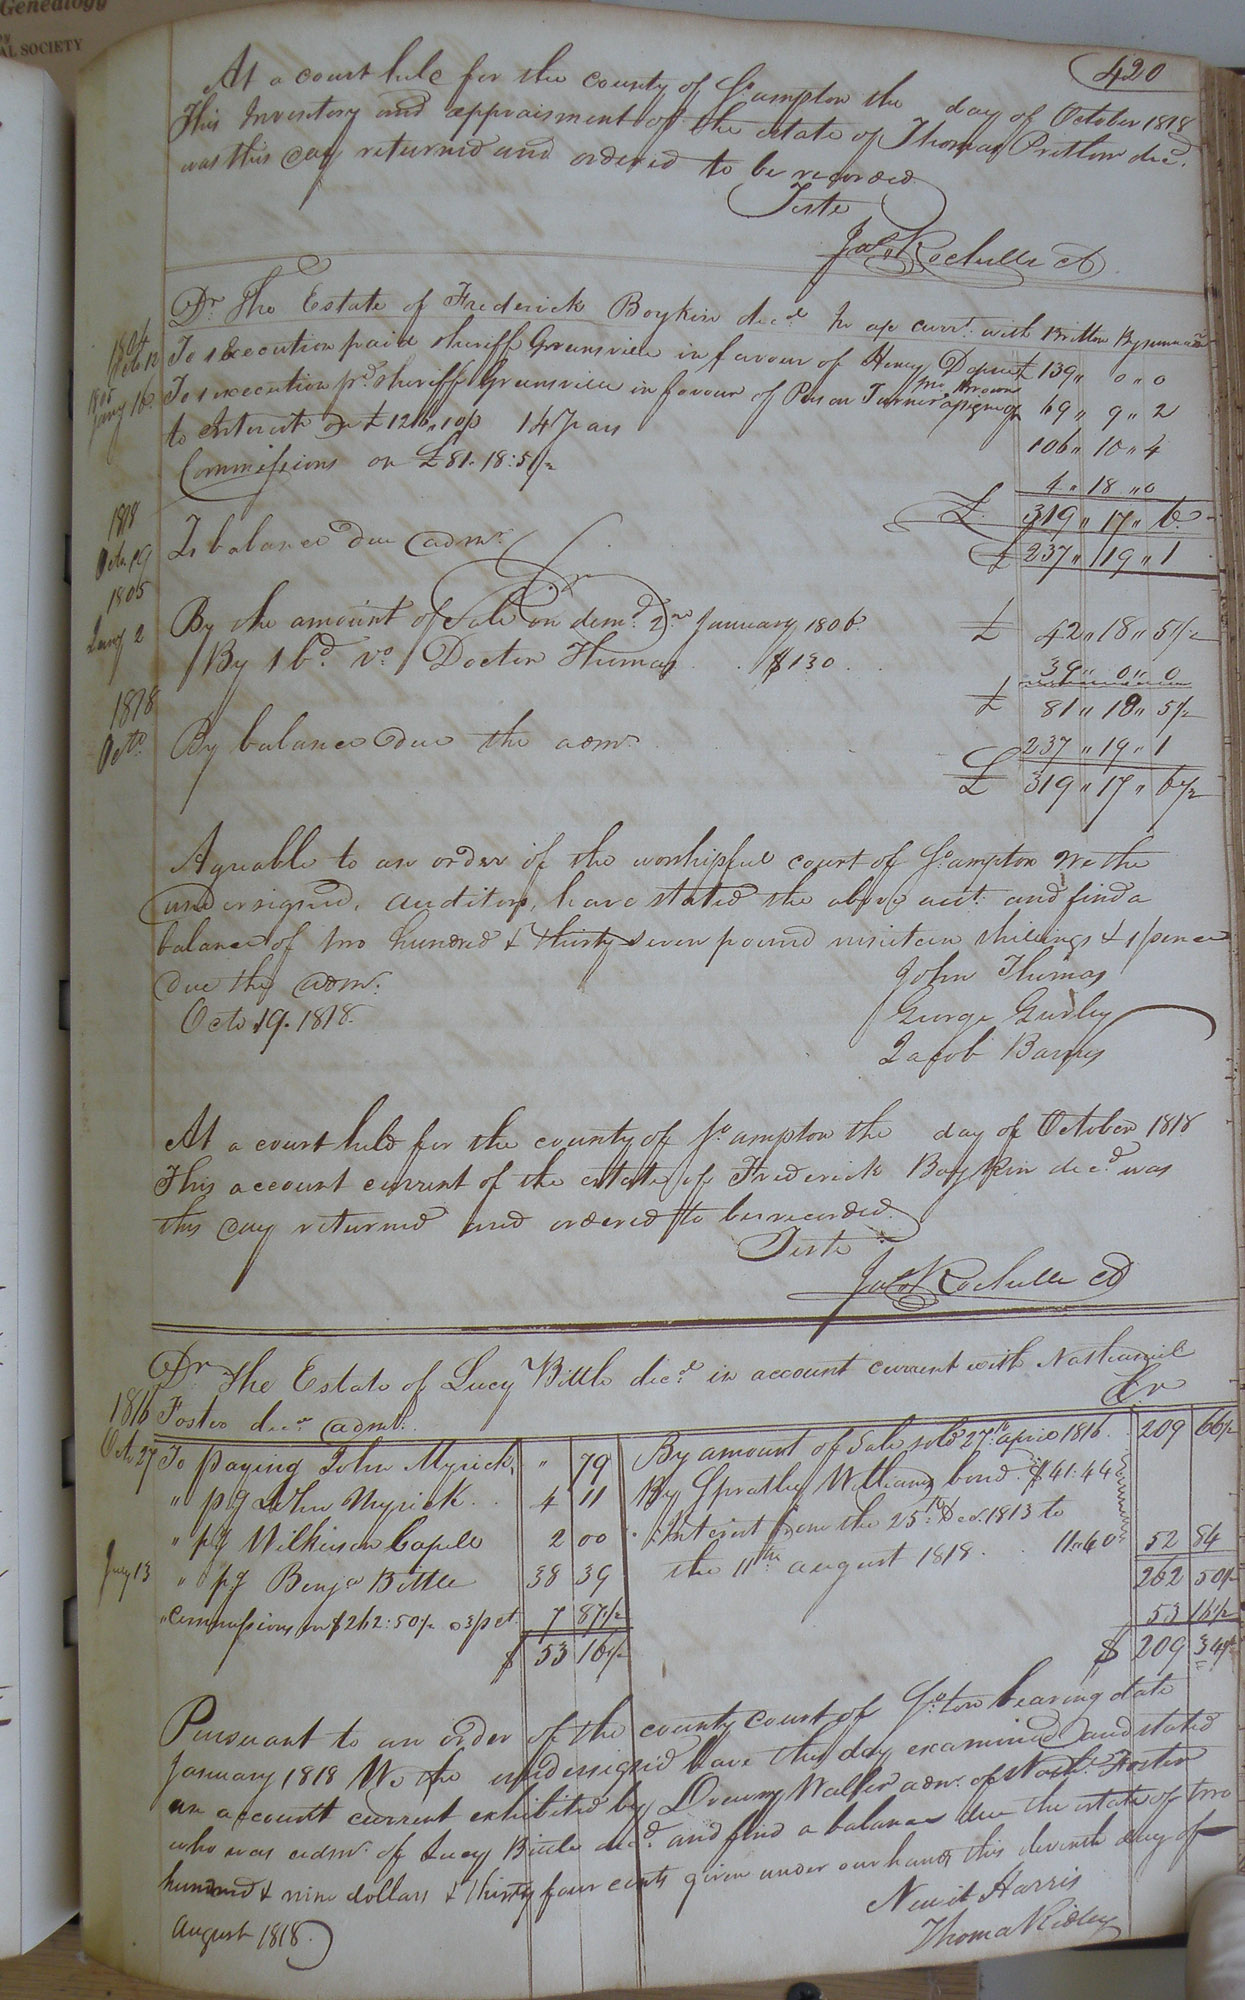 Genealogy
AL SOCIETY
420
At a court held for the county of So.ampton the day of October 1818
This Inventory and appraisment of the estate of Thomas Pretlow decd.
was this day returned and ordered to be recorded
Teste
Jas. Rochelle CC
Dr. The Estate of Frederick Boykin decd. In a/c curr. with Britton
1804 Octo 12 To execution paid sheriff Greensville in favour of Henry D £ 139 " 0 " 0
1805 Jany 16 To execution pd. sheriff Greensville in favour of Person Turner assignee of Brown 69 " 9 " 2
to Interest on £126.10 14 Years 106 " 10 " 4
Commissions on £81.18:5½ 4 " 18 " 0
£ 319 " 17 " 6
1818 Octo. 19 To balance due admr. £ 237 " 19 " 1
Cr
1805 Jany 2 By the amount of Sale on demd. 2nd January 1806 £ 42 " 18 " 5½
By 1 bd. vs. Doctor Thomas $130 39 " 0 " 0
£ 81 " 18 " 5½
1818 Octo. By balance due the admr. 237 " 19 " 1
£ 319 " 17 " 6½
Agreable to an order of the worshipful court of So.ampton We the
undersigned, auditors, have stated the above acct. and find a
balance of two hundred & thirty seven pound nineteen shillings & 1 pence
due the admr.
Octo. 19. 1818.
John Thomas
George Gurley
Jacob Barnes
At a court held for the county of So.ampton the day of October 1818
This account current of the estate of Frederick Boykin decd. was
this day returned and ordered to be recorded
Teste
Jas. Rochelle CC
Dr The Estate of Lucy Bittle decd. in account current with Nathaniel
Foster decd. admr. Cr
1816 Octo 27 To paying John Myrick " 79 By amount of Sale sold 27th april 1816. 209 66½
" pg John Myrick 4 11 By Spratley Williams bond $41.44
" pg Wilkinson Capell 2 00 Interest from the 25th Dec. 1813 to
the 11th august 1818 11.40 52 84
July 13 " pg Benja Bittle 38 39 262 50½
" Commissions on $262:50½ @ 3 pct. 7 87½ 53 16½
$ 53 16½ $ 209 34
Pursuant to an order of the county court of So.ton bearing date
January 1818 We the undersigned have this day examined and stated
an account current exhibited by Drewry Waller admr. of Nathl. Foster
who was admr. of Lucy Bittle decd. and find a balance due the estate of two
hundred & nine dollars & thirty four cents given under our hands this eleventh day of
august 1818.
Newit Harris
Thomas Ridley